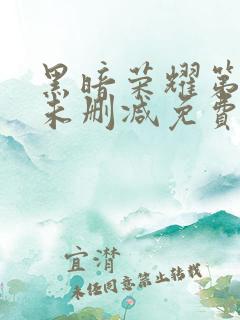 黑暗荣耀第
未删减免費
宜潸
未经同意禁止转载